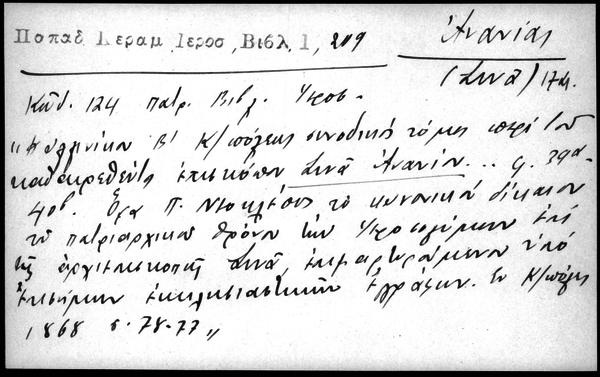 Παπαδ Κεραμ Ιεροσ, Βιβλ 1, 209
Ἀνανίας
(Σινᾶ) 17 αι.
Κώδ. 124 πατρ. Βιβλ. Ἱεροσ.
Β' Κ/πόλεως συνοδικός τόμος περί τοῦ
καθαιρεθέντος ἐπισκόπου Σινᾶ Ἀνανίου... φ. 39α-
40β. Ὅρα Π. Νεοκλέους το κανονικόν δίκαιον
τοῦ πατριαρχικοῦ θρόνου τῶν Ἱεροσολύμων ἐπί
τῆς ἀρχιεπισκοπῆς Σινᾶ, ἐπιμαρτυρόμενον ὑπό
ἐπισήμων ἐκκλησιαστικῶν ἐγγράφων. Ἐν Κ/πόλει
1868 σ. 78-77"